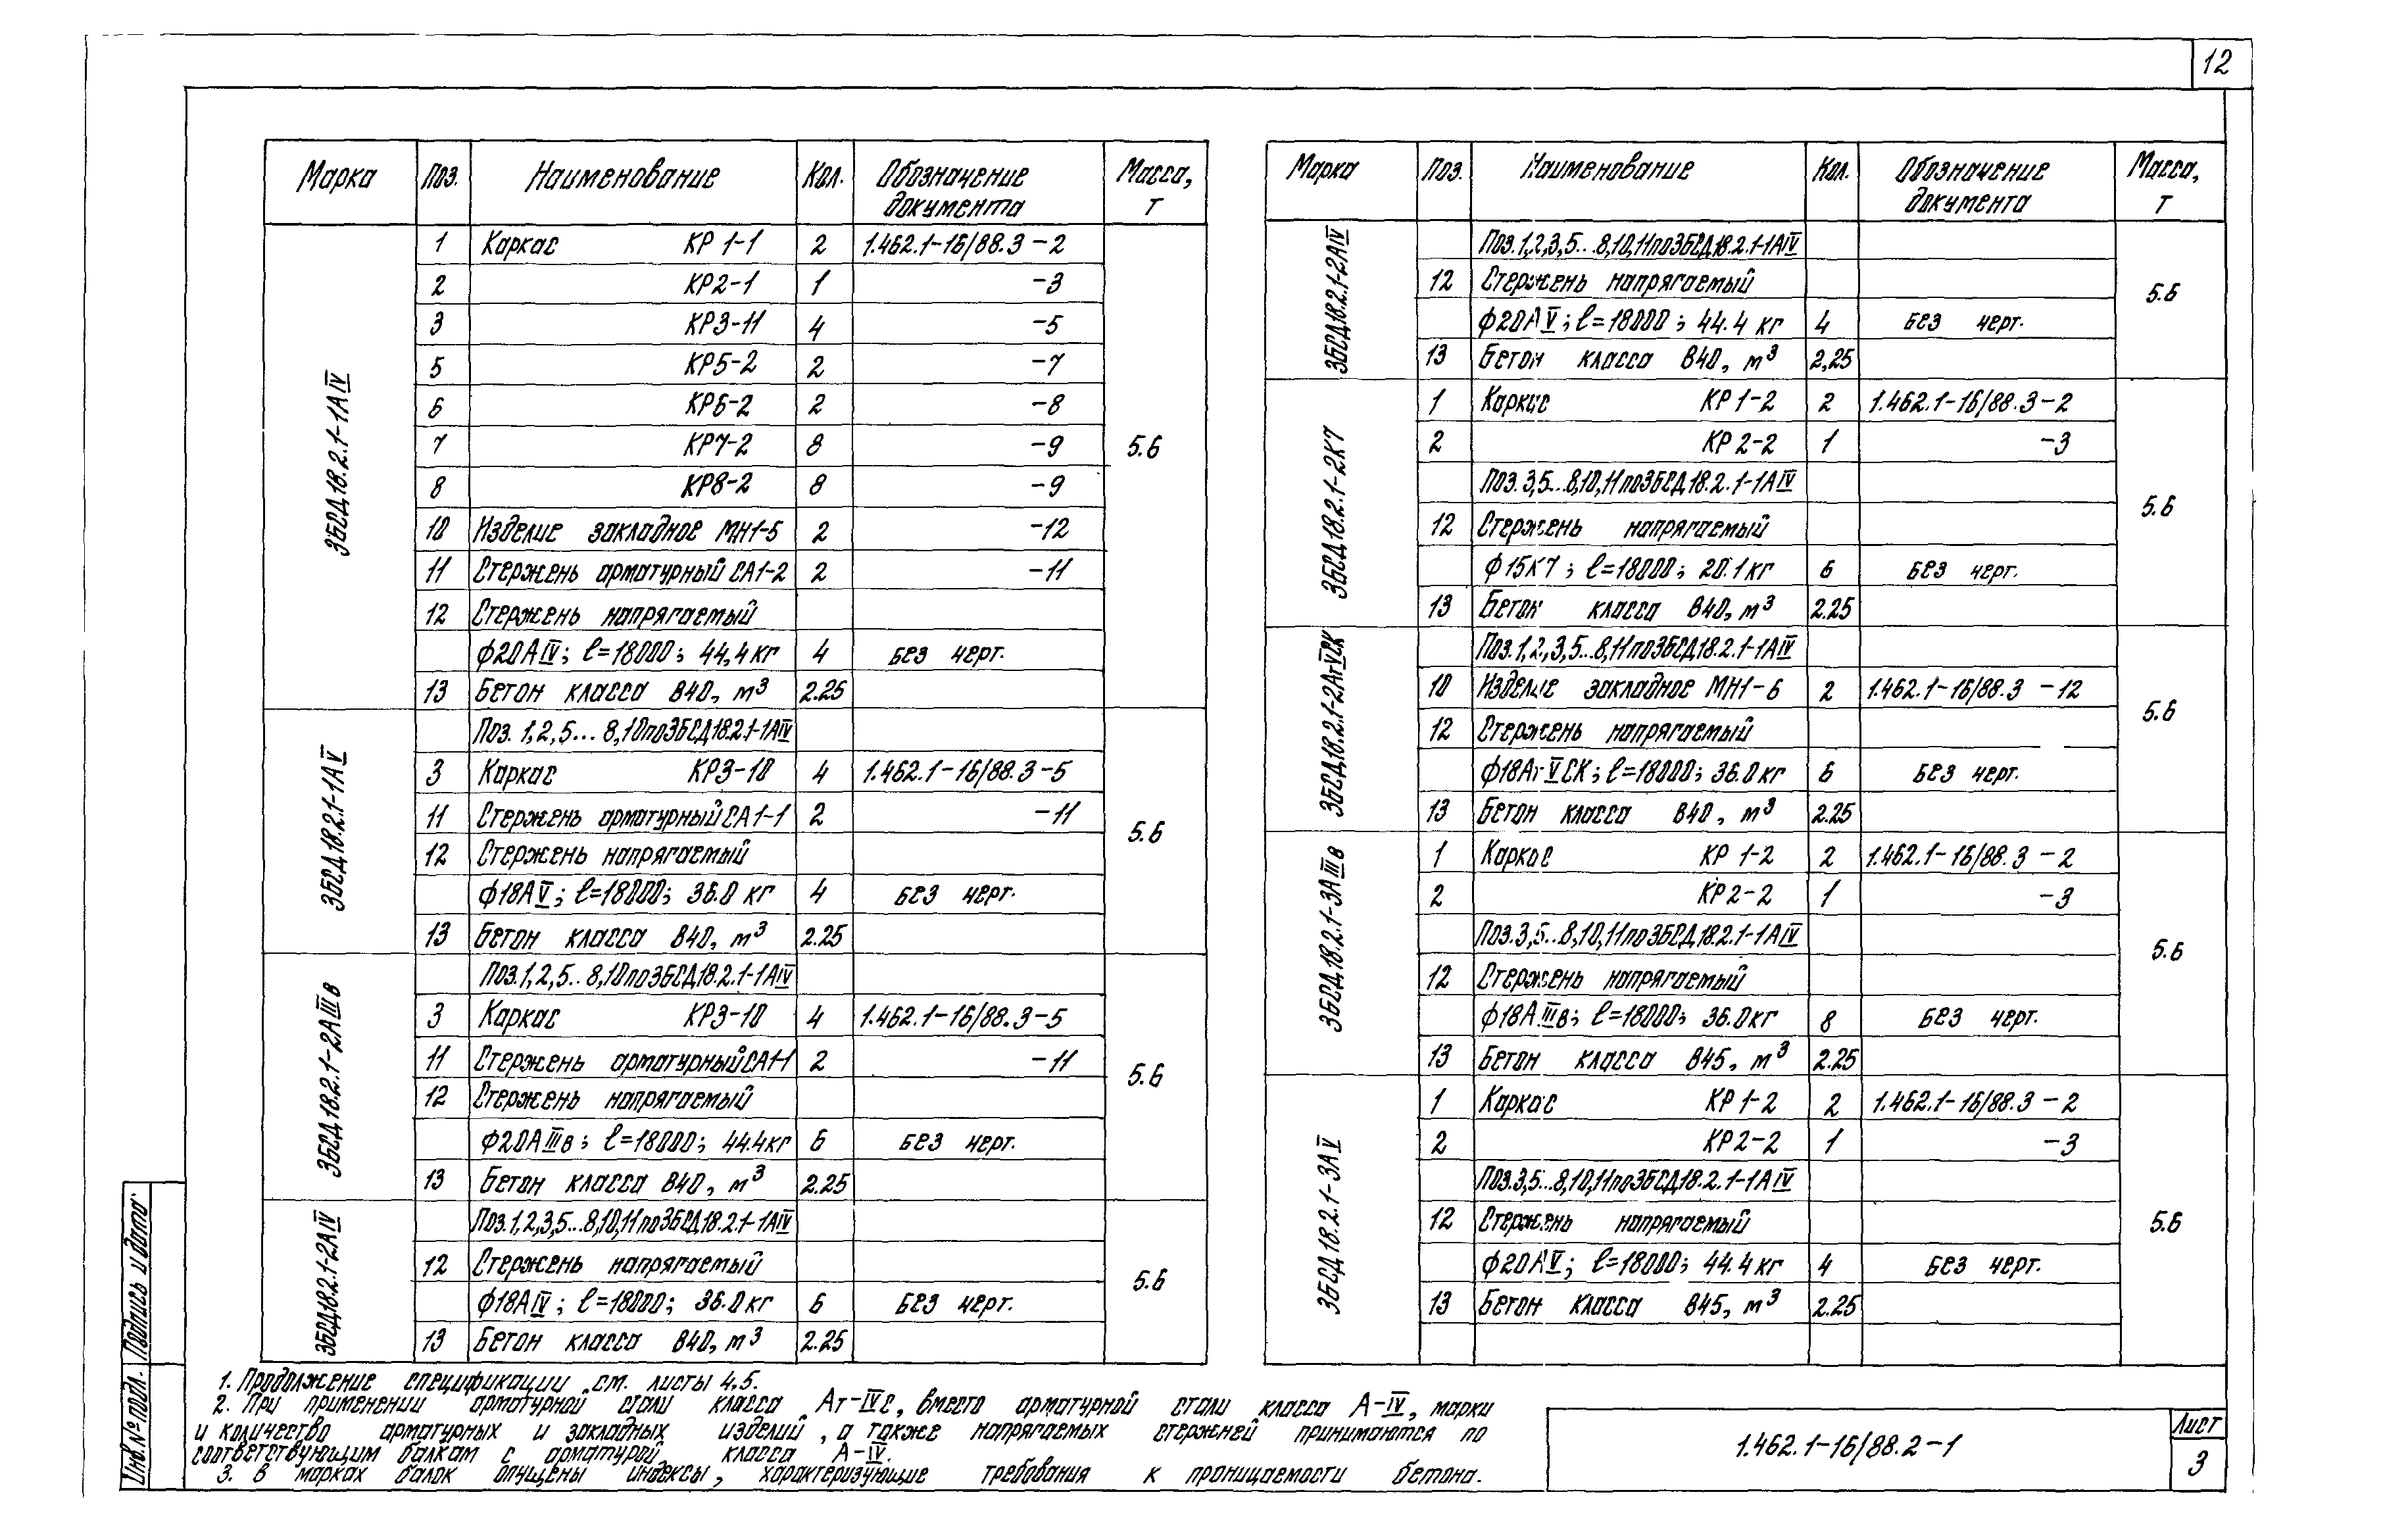 12
Марка Поз. Наименование Кол. Обозначение документа Масса, т
3БСД18.2.1-1АIV 5.6
1 Каркас КР 1-1 2 1.462.1-16/88.3-2
2 КР2-1 1 -3
3 КР3-11 4 -5
5 КР5-2 2 -7
6 КР6-2 2 -8
7 КР7-2 8 -9
8 КР8-2 8 -9
10 Изделие закладное МН1-5 2 -12
11 Стержень арматурный СА1-2 2 -11
12 Стержень напрягаемый
ф20АIV; ℓ=18000; 44,4 кг 4 без черт.
13 Бетон класса В40, м³ 2.25
3БСД18.2.1-1АV 5.6
Поз. 1,2,5...8,10по3БСД18.2.1-1АIV
3 Каркас КР3-10 4 1.462.1-16/88.3-5
11 Стержень арматурный СА1-1 2 -11
12 Стержень напрягаемый
ф18АV; ℓ=18000; 36.0 кг 4 без черт.
13 Бетон класса В40, м³ 2.25
3БСД18.2.1-2АIIIв 5.6
Поз.1,2,5..8,10по3БСД18.2.1-1АIV
3 Каркас КР3-10 4 1.462.1-16/88.3-5
11 Стержень арматурный СА1-1 2 -11
12 Стержень напрягаемый
ф20АIIIв; ℓ=18000; 44.4кг 6 без черт.
13 Бетон класса В40, м³ 2.25
3БСД18.2.1-2АIV 5.6
Поз.1,2,3,5...8,10,11по3БСД18.2.1-1АIV
12 Стержень напрягаемый
ф18АIV; ℓ=18000; 36.0кг 6 без черт.
13 Бетон класса В40, м³ 2.25
Марка Поз. Наименование Кол. Обозначение документа Масса, т
3БСД18.2.1-2АIV 5.6
Поз.1,2,3,5...8,10,11по3БСД18.2.1-1АIV
12 Стержень напрягаемый
ф20АV; ℓ=18000; 44.4 кг 4 без черт.
13 Бетон класса В40, м³ 2,25
3БСД18.2.1-2К7 5.6
1 Каркас КР 1-2 2 1.462.1-16/88.3-2
2 КР 2-2 1 -3
Поз.3,5...8,10,11по3БСД18.2.1-1АIV
12 Стержень напрягаемый
ф15К7; ℓ=18000; 20.1кг 6 без черт.
13 Бетон класса В40, м³ 2.25
3БСД18.2.1-2АтVСК 5.6
Поз.1,2,3,5...8,11по3БСД18.2.1-1АIV
10 Изделие закладное МН1-6 2 1.462.1-16/88.3 -12
12 Стержень напрягаемый
ф18АтVСК; ℓ=18000; 36.0кг 6 без черт.
13 Бетон класса В40, м³ 2.25
3БСД18.2.1-3АIIIв 5.6
1 Каркас КР 1-2 2 1.462.1-16/88.3 -2
2 КР2-2 1 -3
Поз.3,5...8,10,11по3БСД18.2.1-1АIV
12 Стержень напрягаемый
ф18АIIIв; ℓ=18000; 36.0кг 8 без черт.
13 Бетон класса В45, м³ 2.25
3БСД18.2.1-3АV 5.6
1 Каркас КР 1-2 2 1.462.1-16/88.3 -2
2 КР2-2 1 -3
Поз.3,5...8,10,11по3БСД18.2.1-1АIV
12 Стержень напрягаемый
ф20АV; ℓ=18000; 44.4кг 4 без черт.
13 Бетон класса В45, м³ 2.25
1. Продолжение спецификации см. листы 4,5.
2. При применении арматурной стали класса Ат-IVС, вместо арматурной стали класса А-IV, марки
и количество арматурных и закладных изделий, а также напрягаемых стержней принимаются по
соответствующим балкам с арматурой класса А-IV.
3. В марках балок опущены индексы, характеризующие требования к проницаемости бетона.
1.462.1-16/88.2-1
Лист
3
Инв.№ подл. Подпись и дата